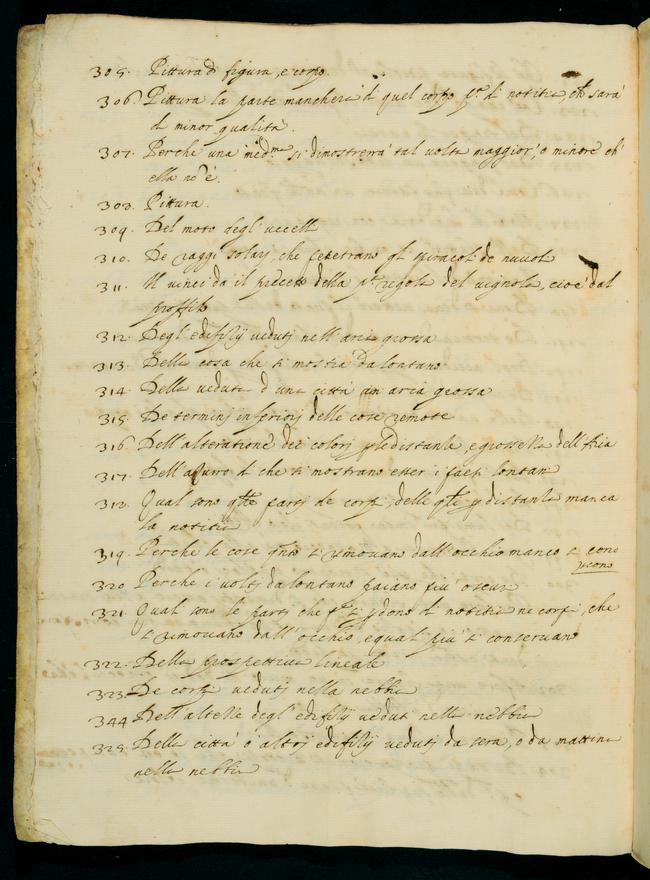 305. Pittura d figura, e corpo.
306. Pittura la parte mancherà d quel corpo pª d notitia, ch sarà
di minor qualità.
307. Perche una medma si dimostrerrà tal volta maggior, o minore ch'
ella nō è.
308. Pittura.
309. Del moto degl' uccelli
310. De raggi solarj, che penetrano gli spiracoli de nuvoli
311. Il vinci dà il precetto della pª regola del vignola, cioè dal
proffilo
312. Degl'edifitij vedutj nell'aria grossa
313. Della cosa che si mostra da lontano
314. Della veduta d una città in aria grossa
315. De terminj inferiorj delle cose remote
316. Dell'alteratione dei colorj p le distanze, e grossezza dell'Aria
317. Dell'azurro d che si mostrano esser i paesi lontani
318. Qual sono qlle partj de corpi, delle qlle p distanza manca
la notitia
319. Perche le cose qnto si rimovano dall'occhio manco si cono
scono
320. Perche i voltj da lontano paiano piu oscuri
321. Qual sono le partj che pª si pdono d notitia ne corpi, che
si rimovano dall'occhio, e quali piu si conservano
322. Della prospettiva lineale
323. De corpi vedutj nella nebbia
344. Dell'altezze degl'edifitij veduti nella nebbia
325. Della città o altrj edifitij vedutj da sera, o da mattina
nella nebbia